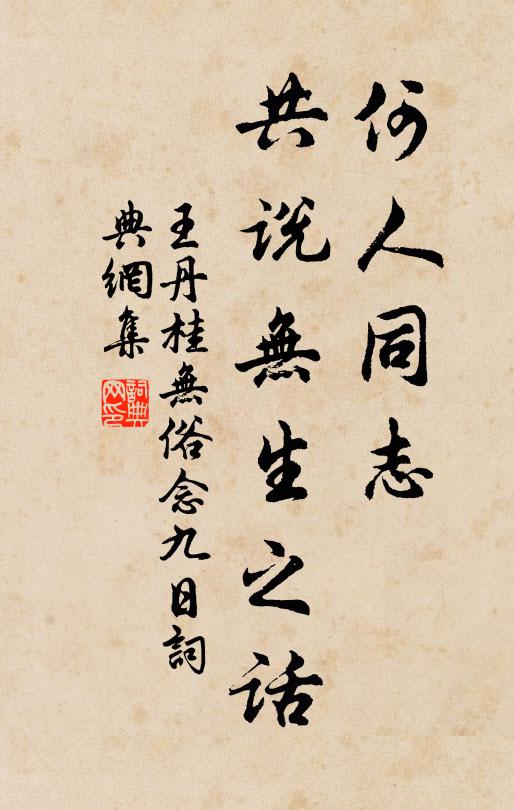 何人同志
共说無生之话
王丹桂無俗念九日詞
典網集
詞典网印